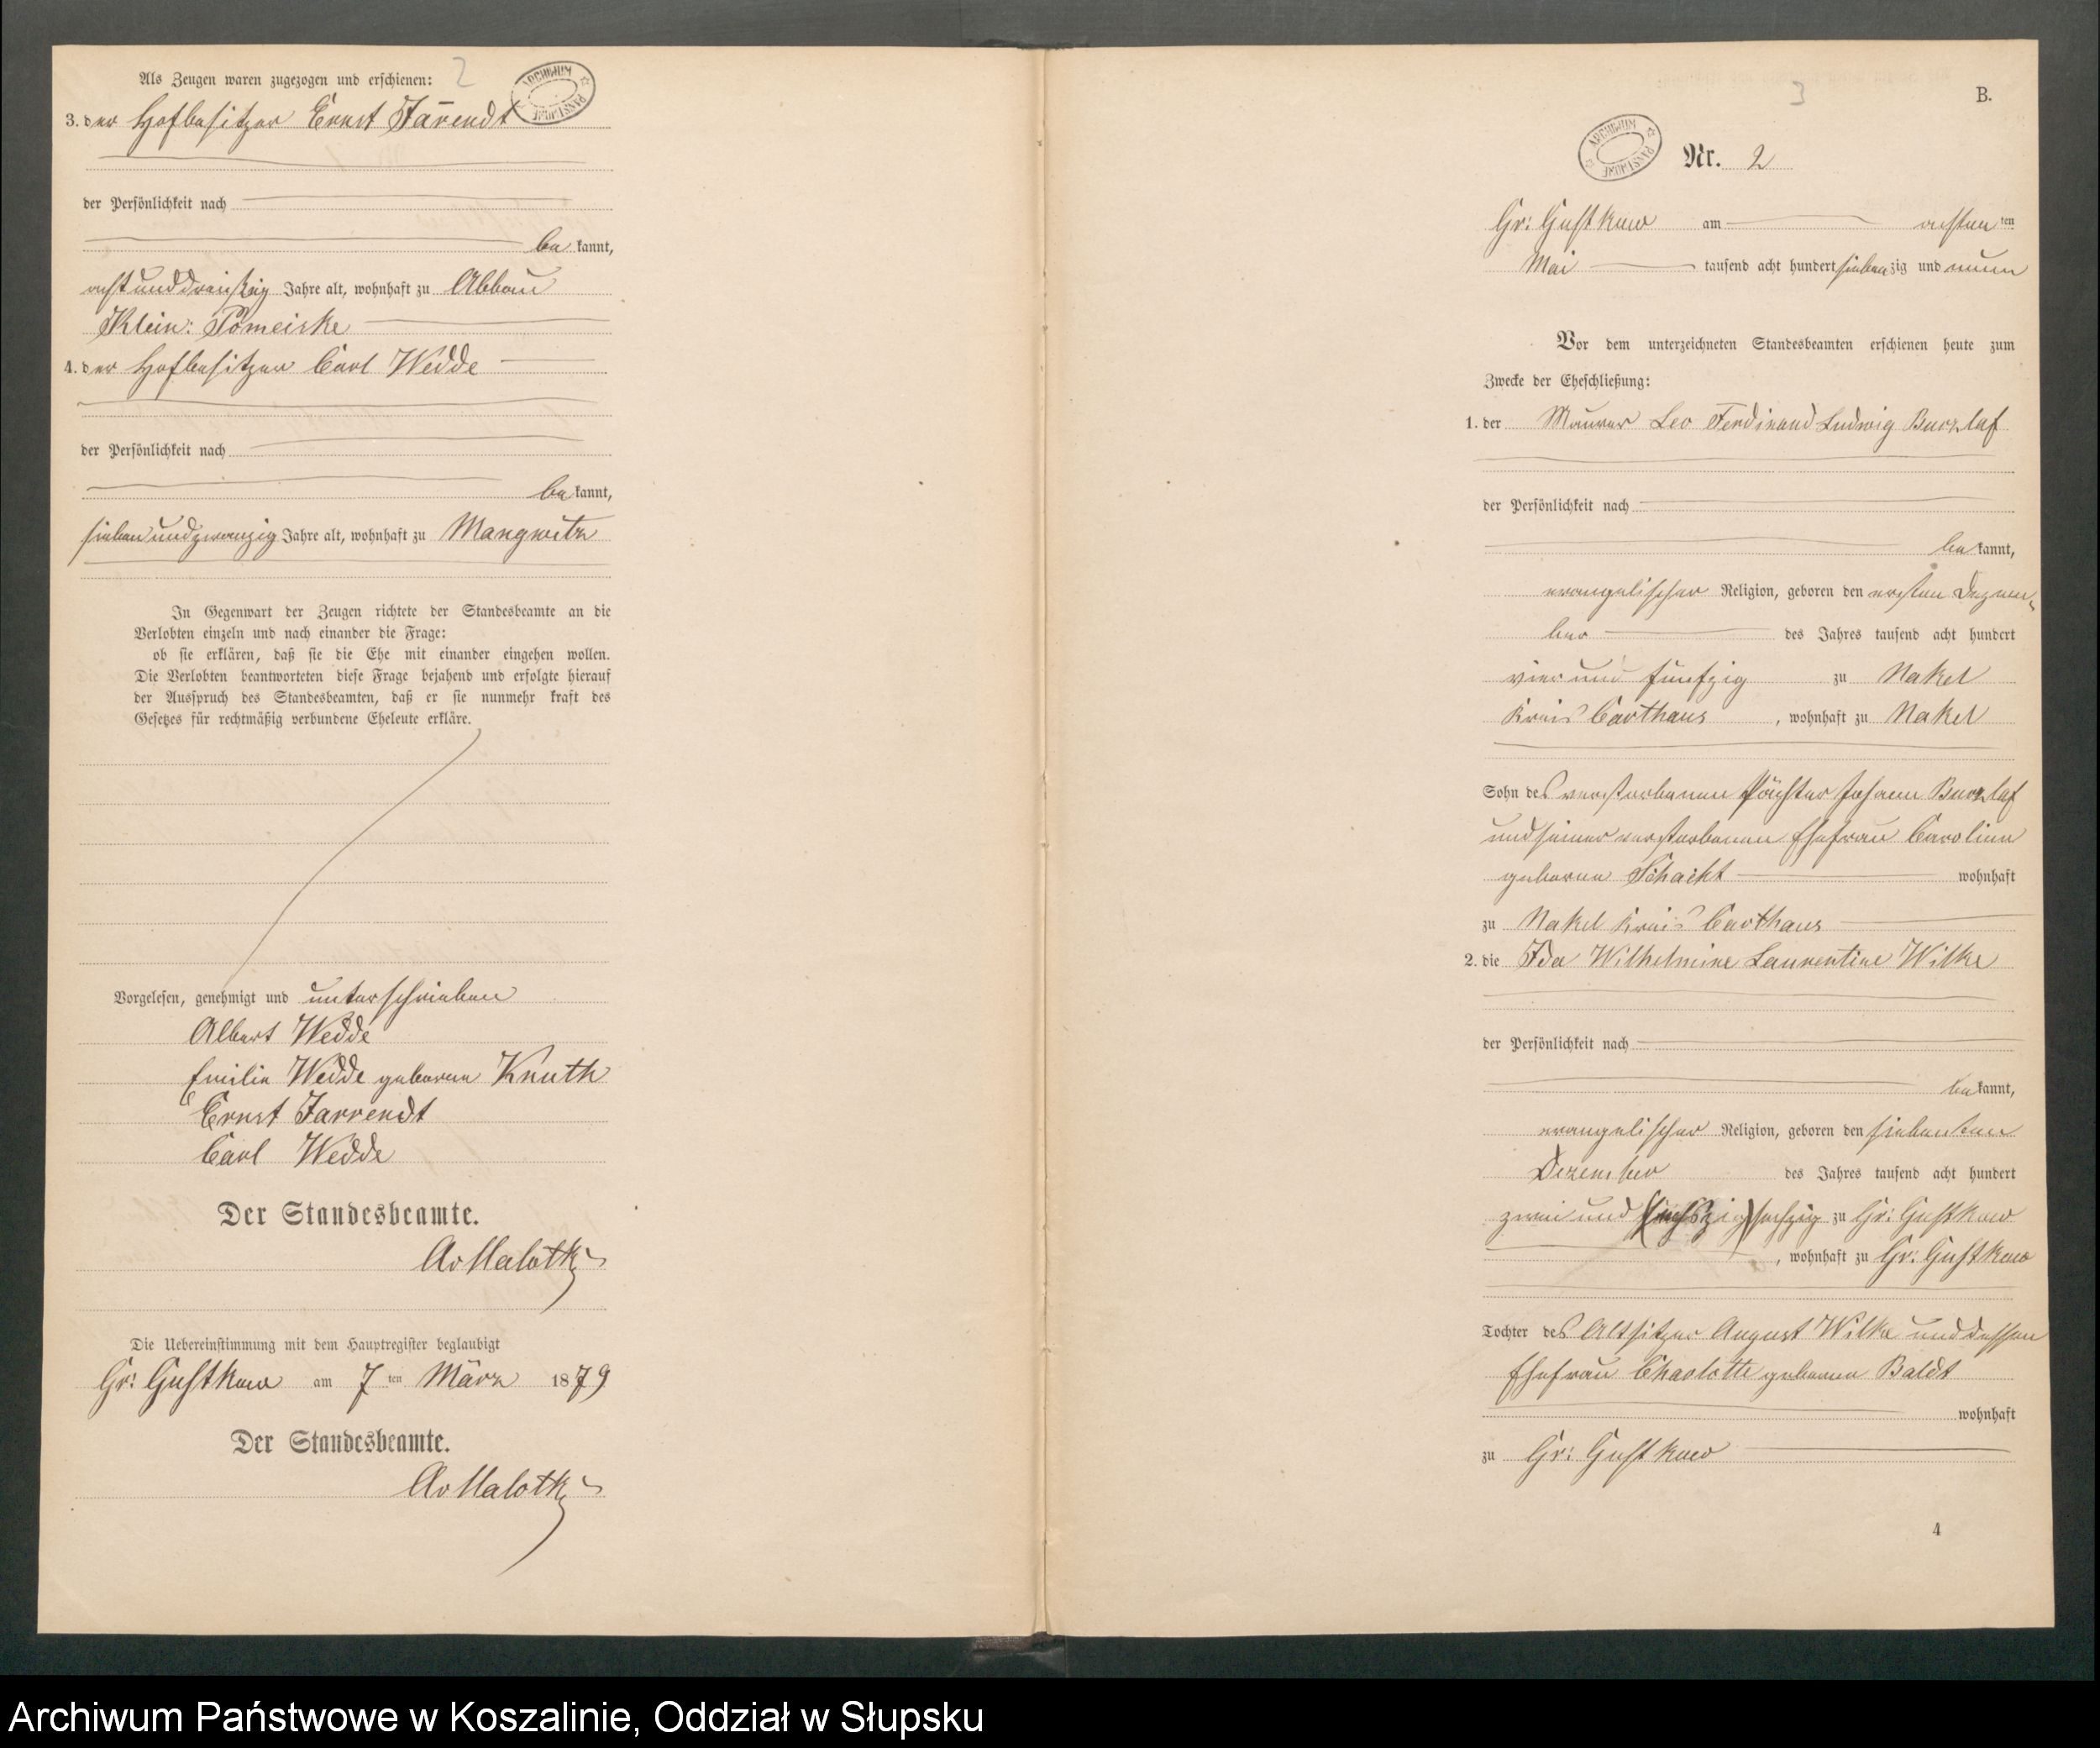 2
Als Zeugen waren zugezogen und erschienen:
ARCHIWUM PAŃSTWOWE
3. der Hofbesitzer Ernst Jarrendt
der Persönlichkeit nach
be kannt,
acht und dreißig Jahre alt, wohnhaft zu Abbau
Klein: Pomeiske
4. der Hofbesitzer Carl Wedde
der Persönlichkeit nach
be kannt,
sieben und zwanzig Jahre alt, wohnhaft zu Mangwitz
In Gegenwart der Zeugen richtete der Standesbeamte an die
Verlobten einzeln und nach einander die Frage:
ob sie erklären, daß sie die Ehe mit einander eingehen wollen.
Die Verlobten beantworteten diese Frage bejahend und erfolgte hierauf
der Ausspruch des Standesbeamten, daß er sie nunmehr kraft des
Gesetzes für rechtmäßig verbundene Eheleute erkläre.
Vorgelesen, genehmigt und unterschrieben
Albert Wedde
Emilie Wedde geborene Knuth
Ernst Jarrendt
Carl Wedde
Der Standesbeamte.
Av Malotky
Die Uebereinstimmung mit dem Hauptregister beglaubigt
Gr: Gustkow am 7 ten März 1879
Der Standesbeamte.
Av Malotky
3
B.
ARCHIWUM PAŃSTWOWE
Nr. 2
Gr: Gustkow am achten ten
Mai tausend acht hundert siebenzig und neun
Vor dem unterzeichneten Standesbeamten erschienen heute zum
Zwecke der Eheschließung:
1. der Maurer Leo Ferdinand Ludwig Burzlaf
der Persönlichkeit nach
be kannt,
evangelischer Religion, geboren den ersten Dezem-
ber des Jahres tausend acht hundert
vier und fünfzig zu Nakel
Kreis Carthaus, wohnhaft zu Nakel
Sohn des verstorbenen Pächter Johann Burzlaf
und seiner verstorbenen Ehefrau Caroline
geborne Schacht wohnhaft
zu Nakel Kreis Carthaus
2. die Ida Wilhelmine Laurentine Wilke
der Persönlichkeit nach
be kannt,
evangelischer Religion, geboren den siebenten
Dezember des Jahres tausend acht hundert
zwei und sechzig zu Gr: Gustkow
, wohnhaft zu Gr: Gustkow
Tochter des Altsitzer August Wilke und dessen
Ehefrau Charlotte geborene Baldt
wohnhaft
zu Gr: Gustkow
4
Archiwum Państwowe w Koszalinie, Oddział w Słupsku